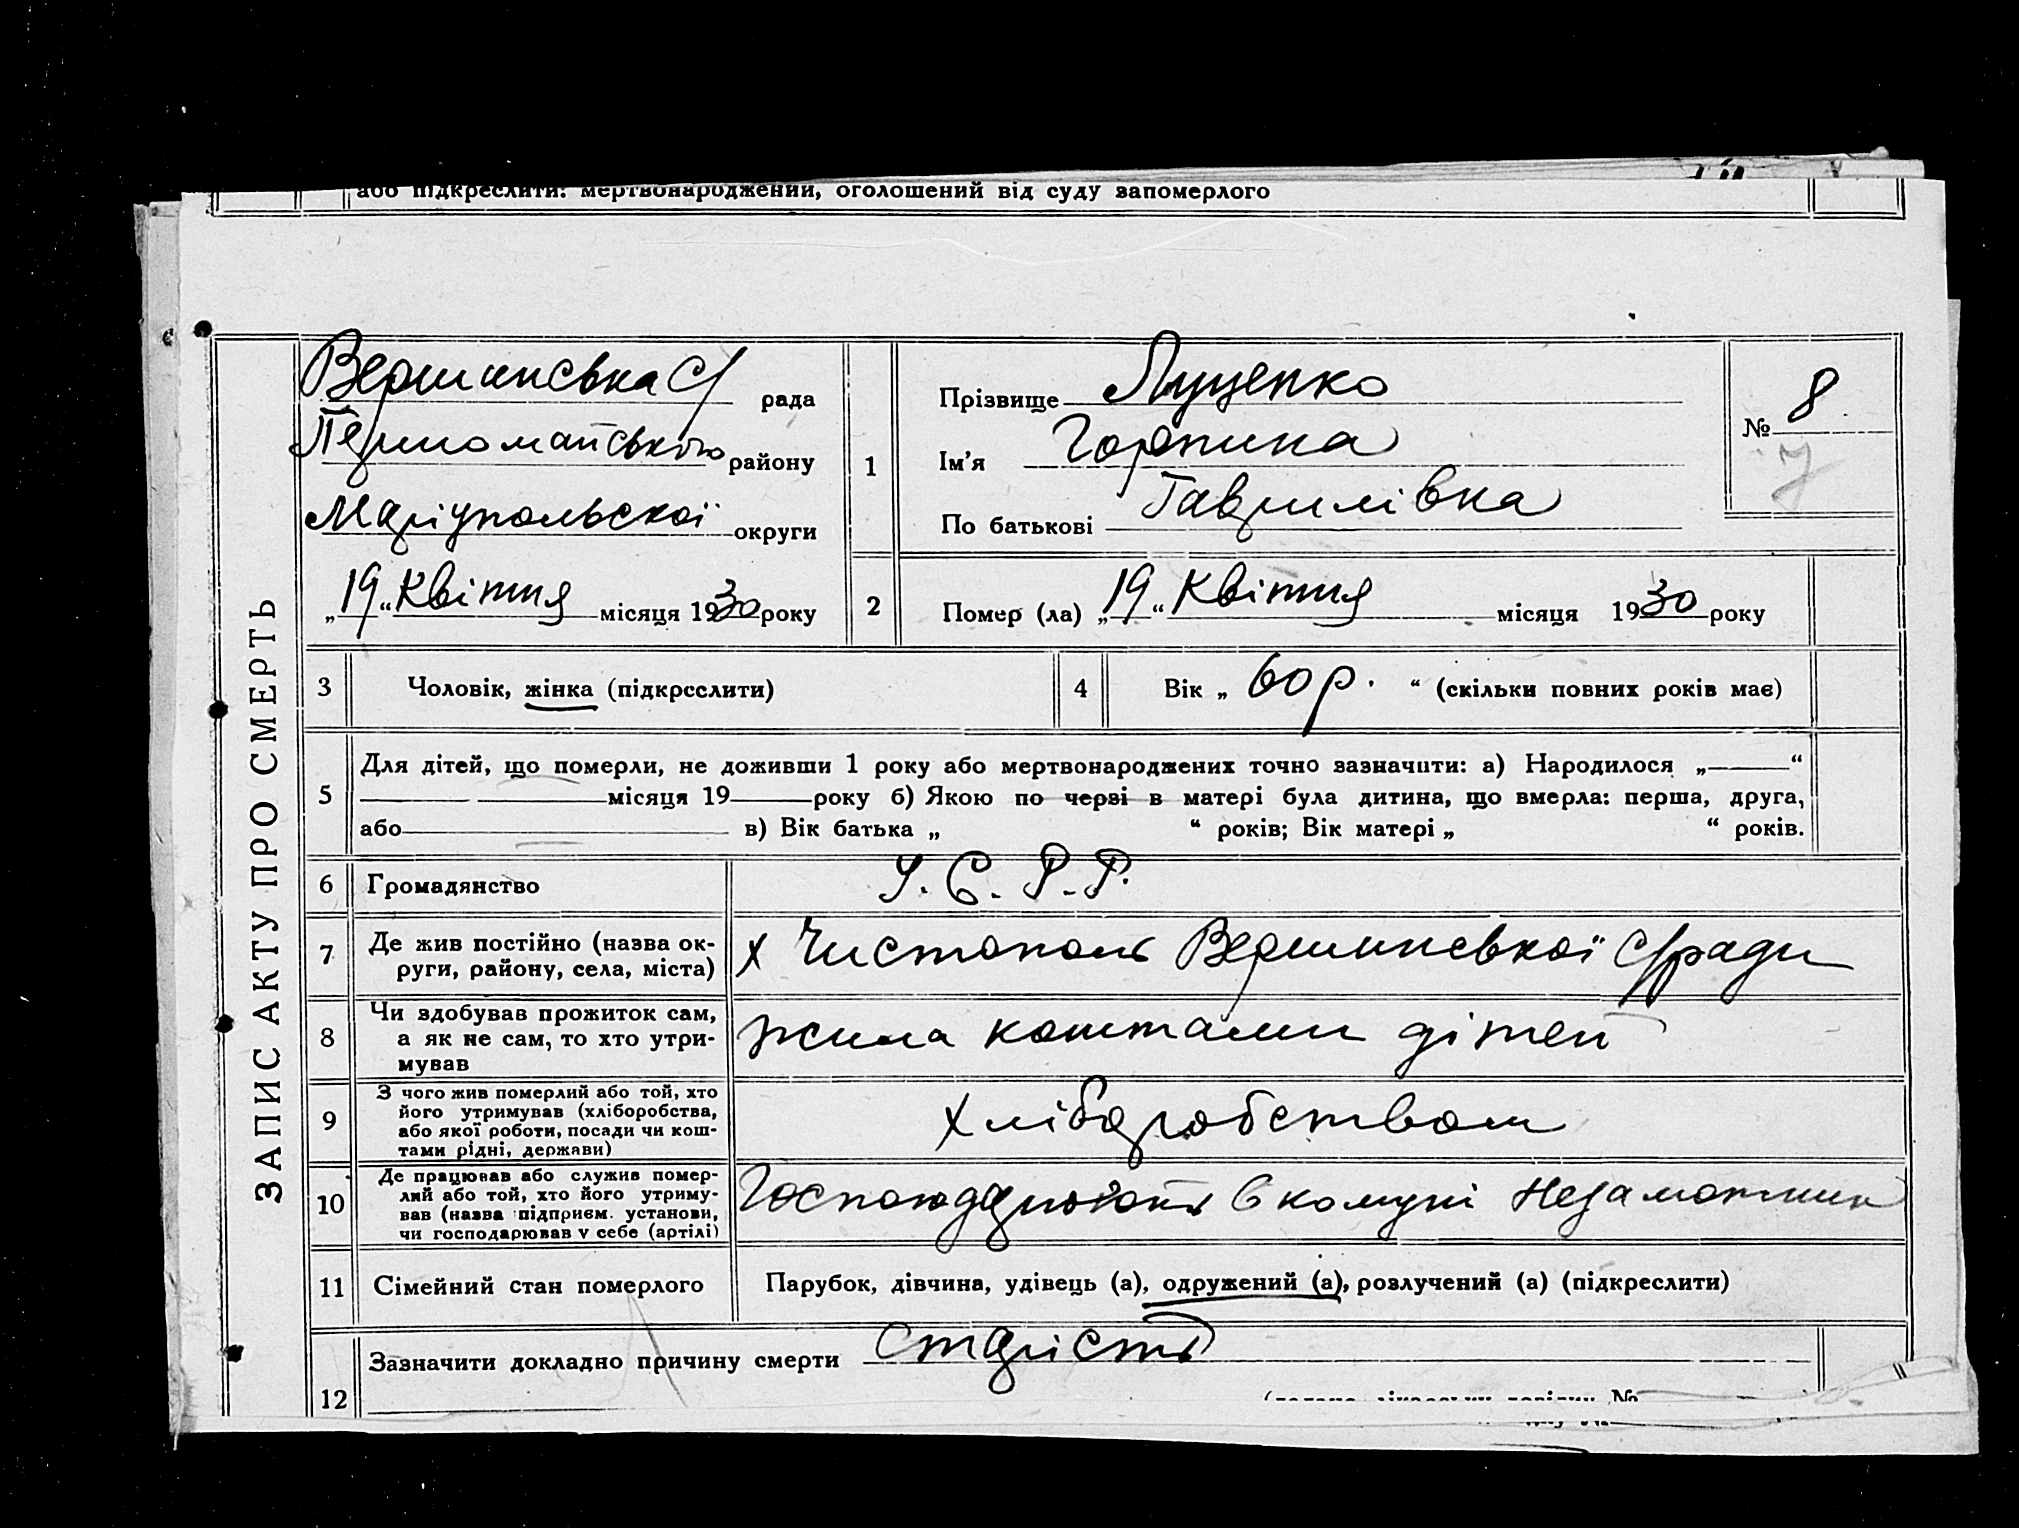 або підкреслити: мертвонароджений, оголошений від суду запомерлого
ЗАПИС АКТУ ПРО СМЕРТЬ
Вершинська С/ рада
Першомайського району
Маріупольської округи
„19“ Квітня місяця 1930 року
1
Прізвище Луценко
Ім'я Горпина
По батькові Гаврилівка
№ 8
7
2 Помер (ла) „19“ Квітня місяця 1930 року
3 Чоловік, жінка (підкреслити)
4 Вік „ 60 р. “ (скільки повних років має)
5
Для дітей, що померли, не доживши 1 року або мертвонароджених точно зазначити: а) Народилося „ “
місяця 19 року б) Якою по черзі в матері була дитина, що вмерла: перша, друга,
або в) Вік батька „ “ років; Вік матері „ “ років.
6 Громадянство У. С. Р. Р.
7 Де жив постійно (назва ок-
руги, району, села, міста)
х Чистополь Вершинської С/ради
8 Чи здобував прожиток сам,
а як не сам, то хто утри-
мував
жила коштами дітей
9 З чого жив померлий або той, хто
його утримував (хліборобства,
або якої роботи, посади чи кош-
тами рідні, держави)
Хліборобством
10 Де працював або служив помер-
лий або той, хто його утриму-
вав (назва підприєм. установи,
чи господарював у себе (артілі)
в комуні Незаможник
11 Сімейний стан померлого Парубок, дівчина, удівець (а), одружений (а), розлучений (а) (підкреслити)
12 Зазначити докладно причину смерти старість
№